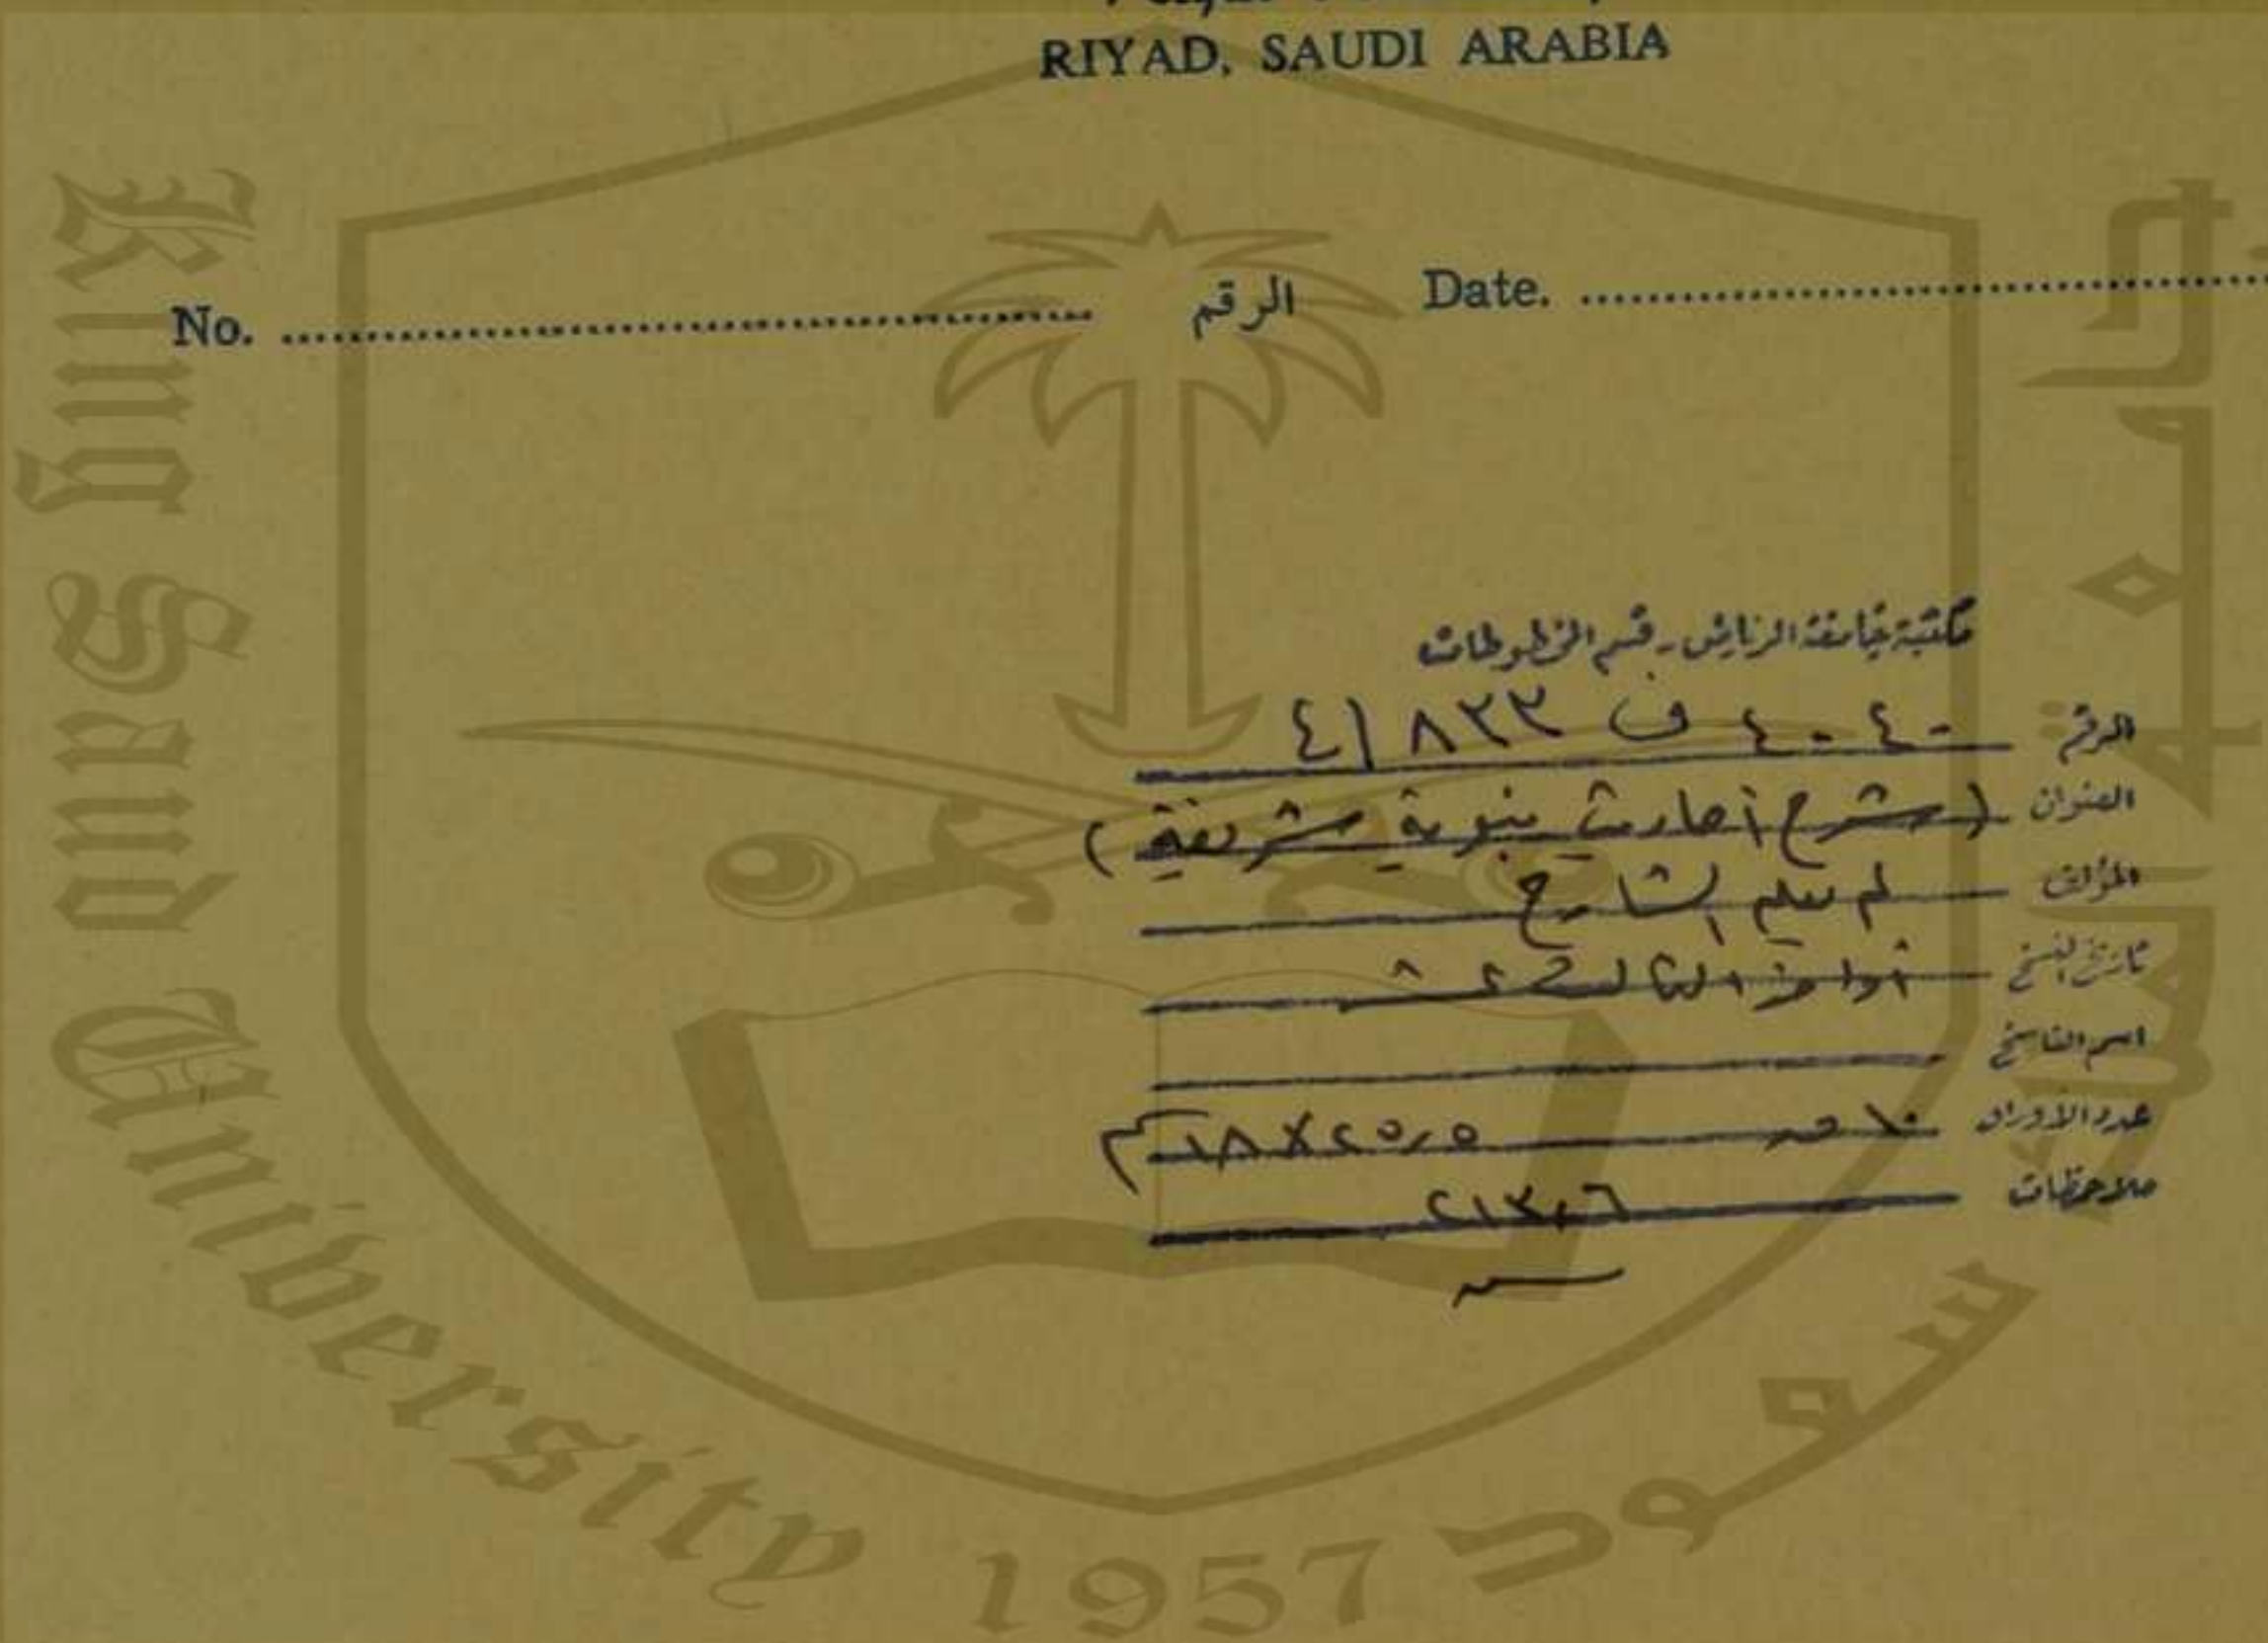 RIYAD, SAUDI ARABIA
No. الرقم Date.
مكتبة جامعة الرياض - قسم المخطوطات
الرقم ٤٠٤٠ ف ٨٣٣ / ٤
العنوان (شرح أحاديث نبوية شريفة)
المؤلف لم يعلم الشارح
تاريخ النسخ أواخر الثالث عشر
اسم الناسخ
عدد الأوراق ١٠ ق ٢٥٫٥ × ١٨ سم
ملاحظات ٢١٣٫٦
King Saud University 1957 جامعة الملك سعود